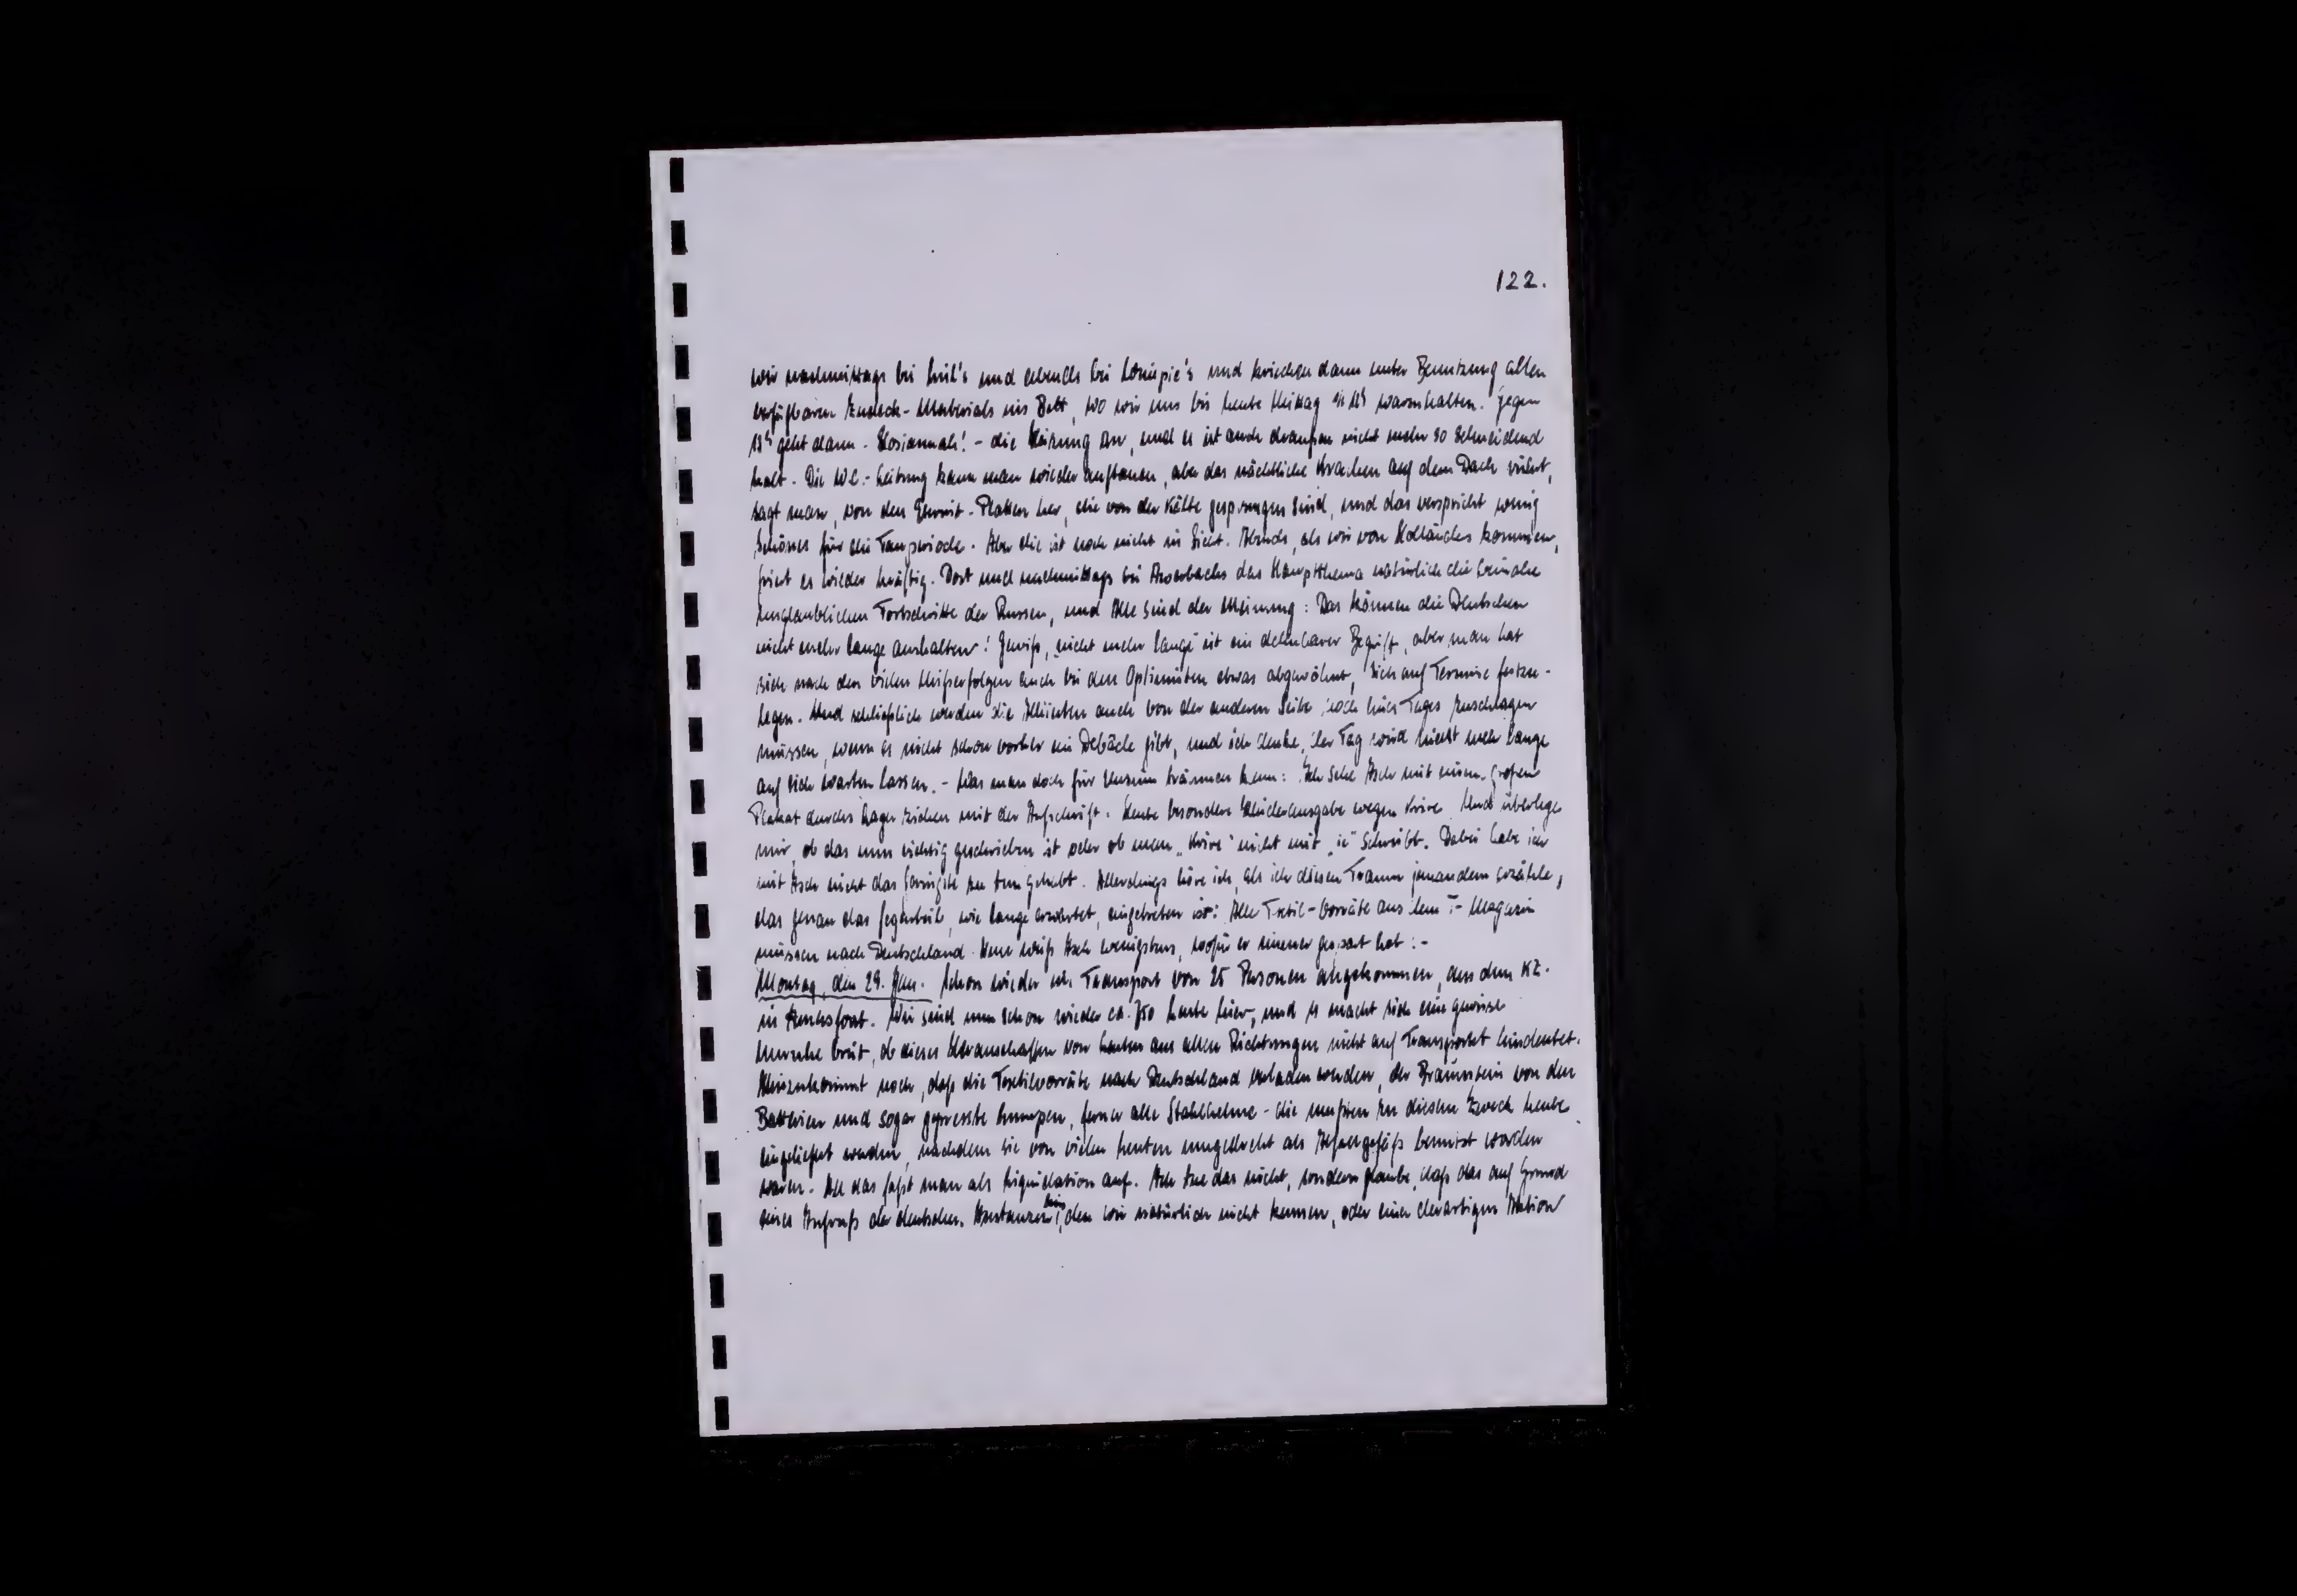 122.
wir nachmittags bei und abends bei und kriechen dann unter Benutzung allen
verfügbaren Zudeck-Materials ins Bett, wo wir uns bis heute Mittag warmhalten. Gegen
13h geht dann - Hosiannah! - die Heizung an, und es ist auch draußen nicht mehr so schneidend
kalt. Die W.C.-Leitung kann man wieder auftauen, aber das nächtliche Krachen auf dem Dach rührt,
sagt man, von den Eternit-Platten her, die von der Kälte gesprungen sind, und das verspricht wenig
Schönes für die Tauperiode. Aber die ist noch nicht in Sicht. Abends, als wir von Holländers kommen,
friert es wieder kräftig. Dort und nachmittags bei das Hauptthema natürlich die beinahe
unglaublichen Fortschritte der Russen, und Alle sind der Meinung: Das können die Deutschen
nicht mehr lange aushalten! Gewiß, „nicht mehr lange" ist ein dehnbarer Begriff, aber man hat
sich nach den vielen Mißerfolgen auch bei den Optimisten etwas abgewöhnt, sich auf Termine festzu-
legen. Und schließlich werden die Alliierten auch von der anderen Seite noch eines Tages zuschlagen
müssen, wenn es nicht schon vorher ein Debâcle gibt, und ich denke, der Tag wird nicht mehr lange
auf sich warten lassen. - Was man doch für Unsinn träumen kann: Ich sehe Asch mit einem großen
Plakat durchs Lager ziehen mit der Aufschrift: Heute besondere Kleiderausgabe wegen Krise. Und überlege
mir, ob das nun richtig geschrieben ist oder ob man „Krise" nicht mit „ie" schreibt. Dabei habe ich
mit Asch nicht das Geringste zu tun gehabt. Allerdings höre ich, als ich diesen Traum jemandem erzähle,
das genau das Gegenteil, wie lange erwartet, eingetreten ist: Alle Textil-Vorräte aus dem T-Magazin
müssen nach Deutschland. Nun weiß Asch wenigstens, wofür er immer gespart hat! -
Montag, den 29. Jan. Schon wieder ein Transport von 25 Personen angekommen, aus dem KZ.
in Amersfoort. Wir sind nun schon wieder ca. 750 Leute hier, und es macht sich eine gewisse
Unruhe breit, ob dieses Heranschaffen von Leuten aus allen Richtungen nicht auf Transport hindeutet.
Hinzukommt noch, daß die Textilvorräte nach Deutschland verladen werden, der Braunstein von den
Batterien und sogar gepresste Lumpen, ferner alle Stahlhelme - die mußten zu diesem Zweck heute
eingeliefert werden, nachdem sie von vielen Leuten ungestört als benutzt worden
waren. All das faßt man als Liquidation auf. Ich tue das nicht, sondern glaube, daß das auf Grund
eines Aufrufs der deutschen den wir natürlich nicht kennen, oder einer derartigen Aktion